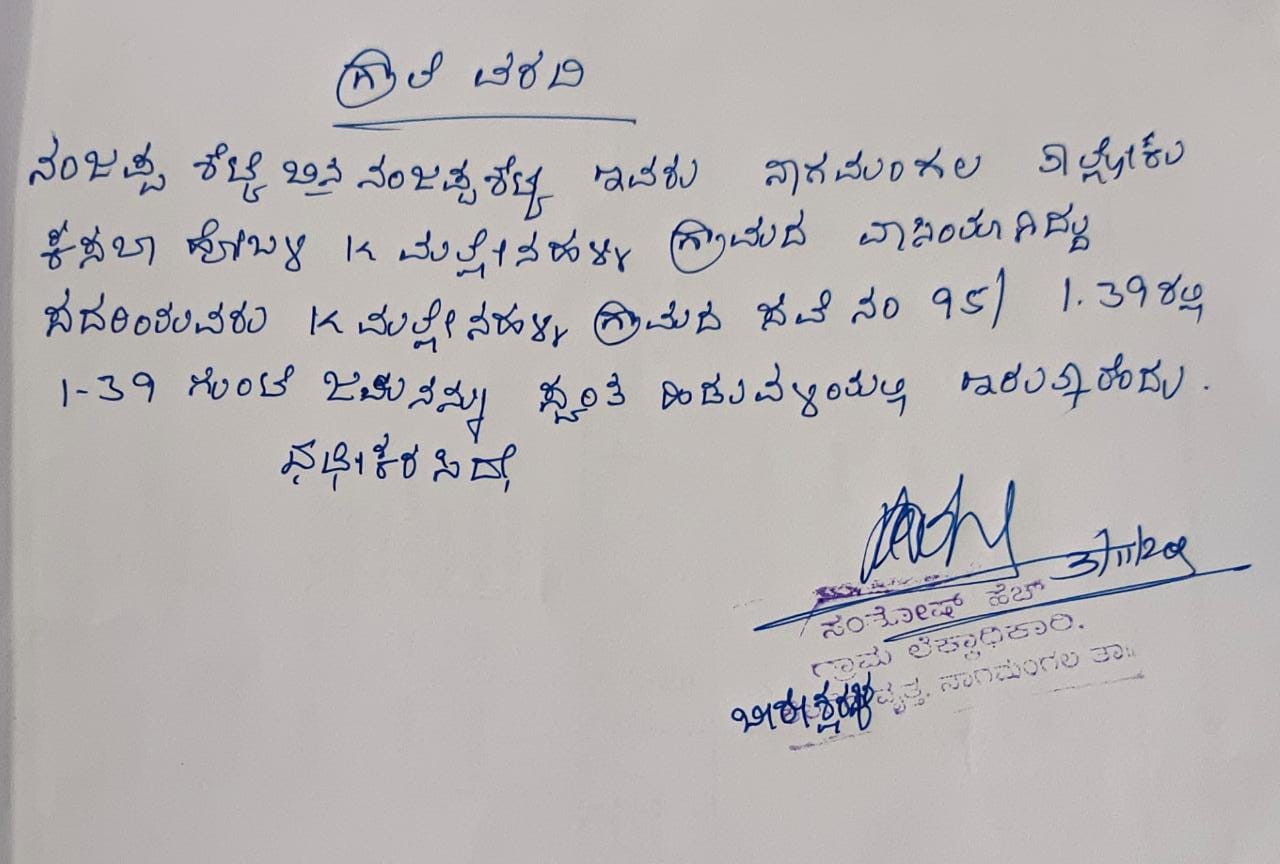 ಗ್ರಾಲೆ ವರದಿ
ನಂಜಪ್ಪ ಶೆಟ್ಟಿ ಬಿನ್ ನಂಜಪ್ಪಶೆಟ್ಟಿ ಇವರು ನಾಗಮಂಗಲ ತಾಲ್ಲೋಕು
ಕಸಬಾ ಹೋಬಳಿ K ಮಲ್ಲೇನಹಳ್ಳಿ ಗ್ರಾಮದ ವಾಸಿಯಾಗಿದ್ದು
ಸದರಿಯವರು K ಮಲ್ಲೇನಹಳ್ಳಿ ಗ್ರಾಮದ ಸವೆ ನಂ 95/ 1.39ರಲ್ಲಿ
1-39 ಗುಂಟೆ ಜಮೀನನ್ನು ಸ್ವಂತ ಹಿಡುವಳಿಯಲ್ಲಿ ಇರುತ್ತಾರೆಂದು.
ಧೃಢೀಕರಿಸಿದೆ
3/11/20
ಸಂತೋಷ್ ಹೆಚ್
ಗ್ರಾಮ ಲೆಕ್ಕಾಧಿಕಾರಿ.
ವೃತ್ತ, ನಾಗಮಂಗಲ ತಾ॥